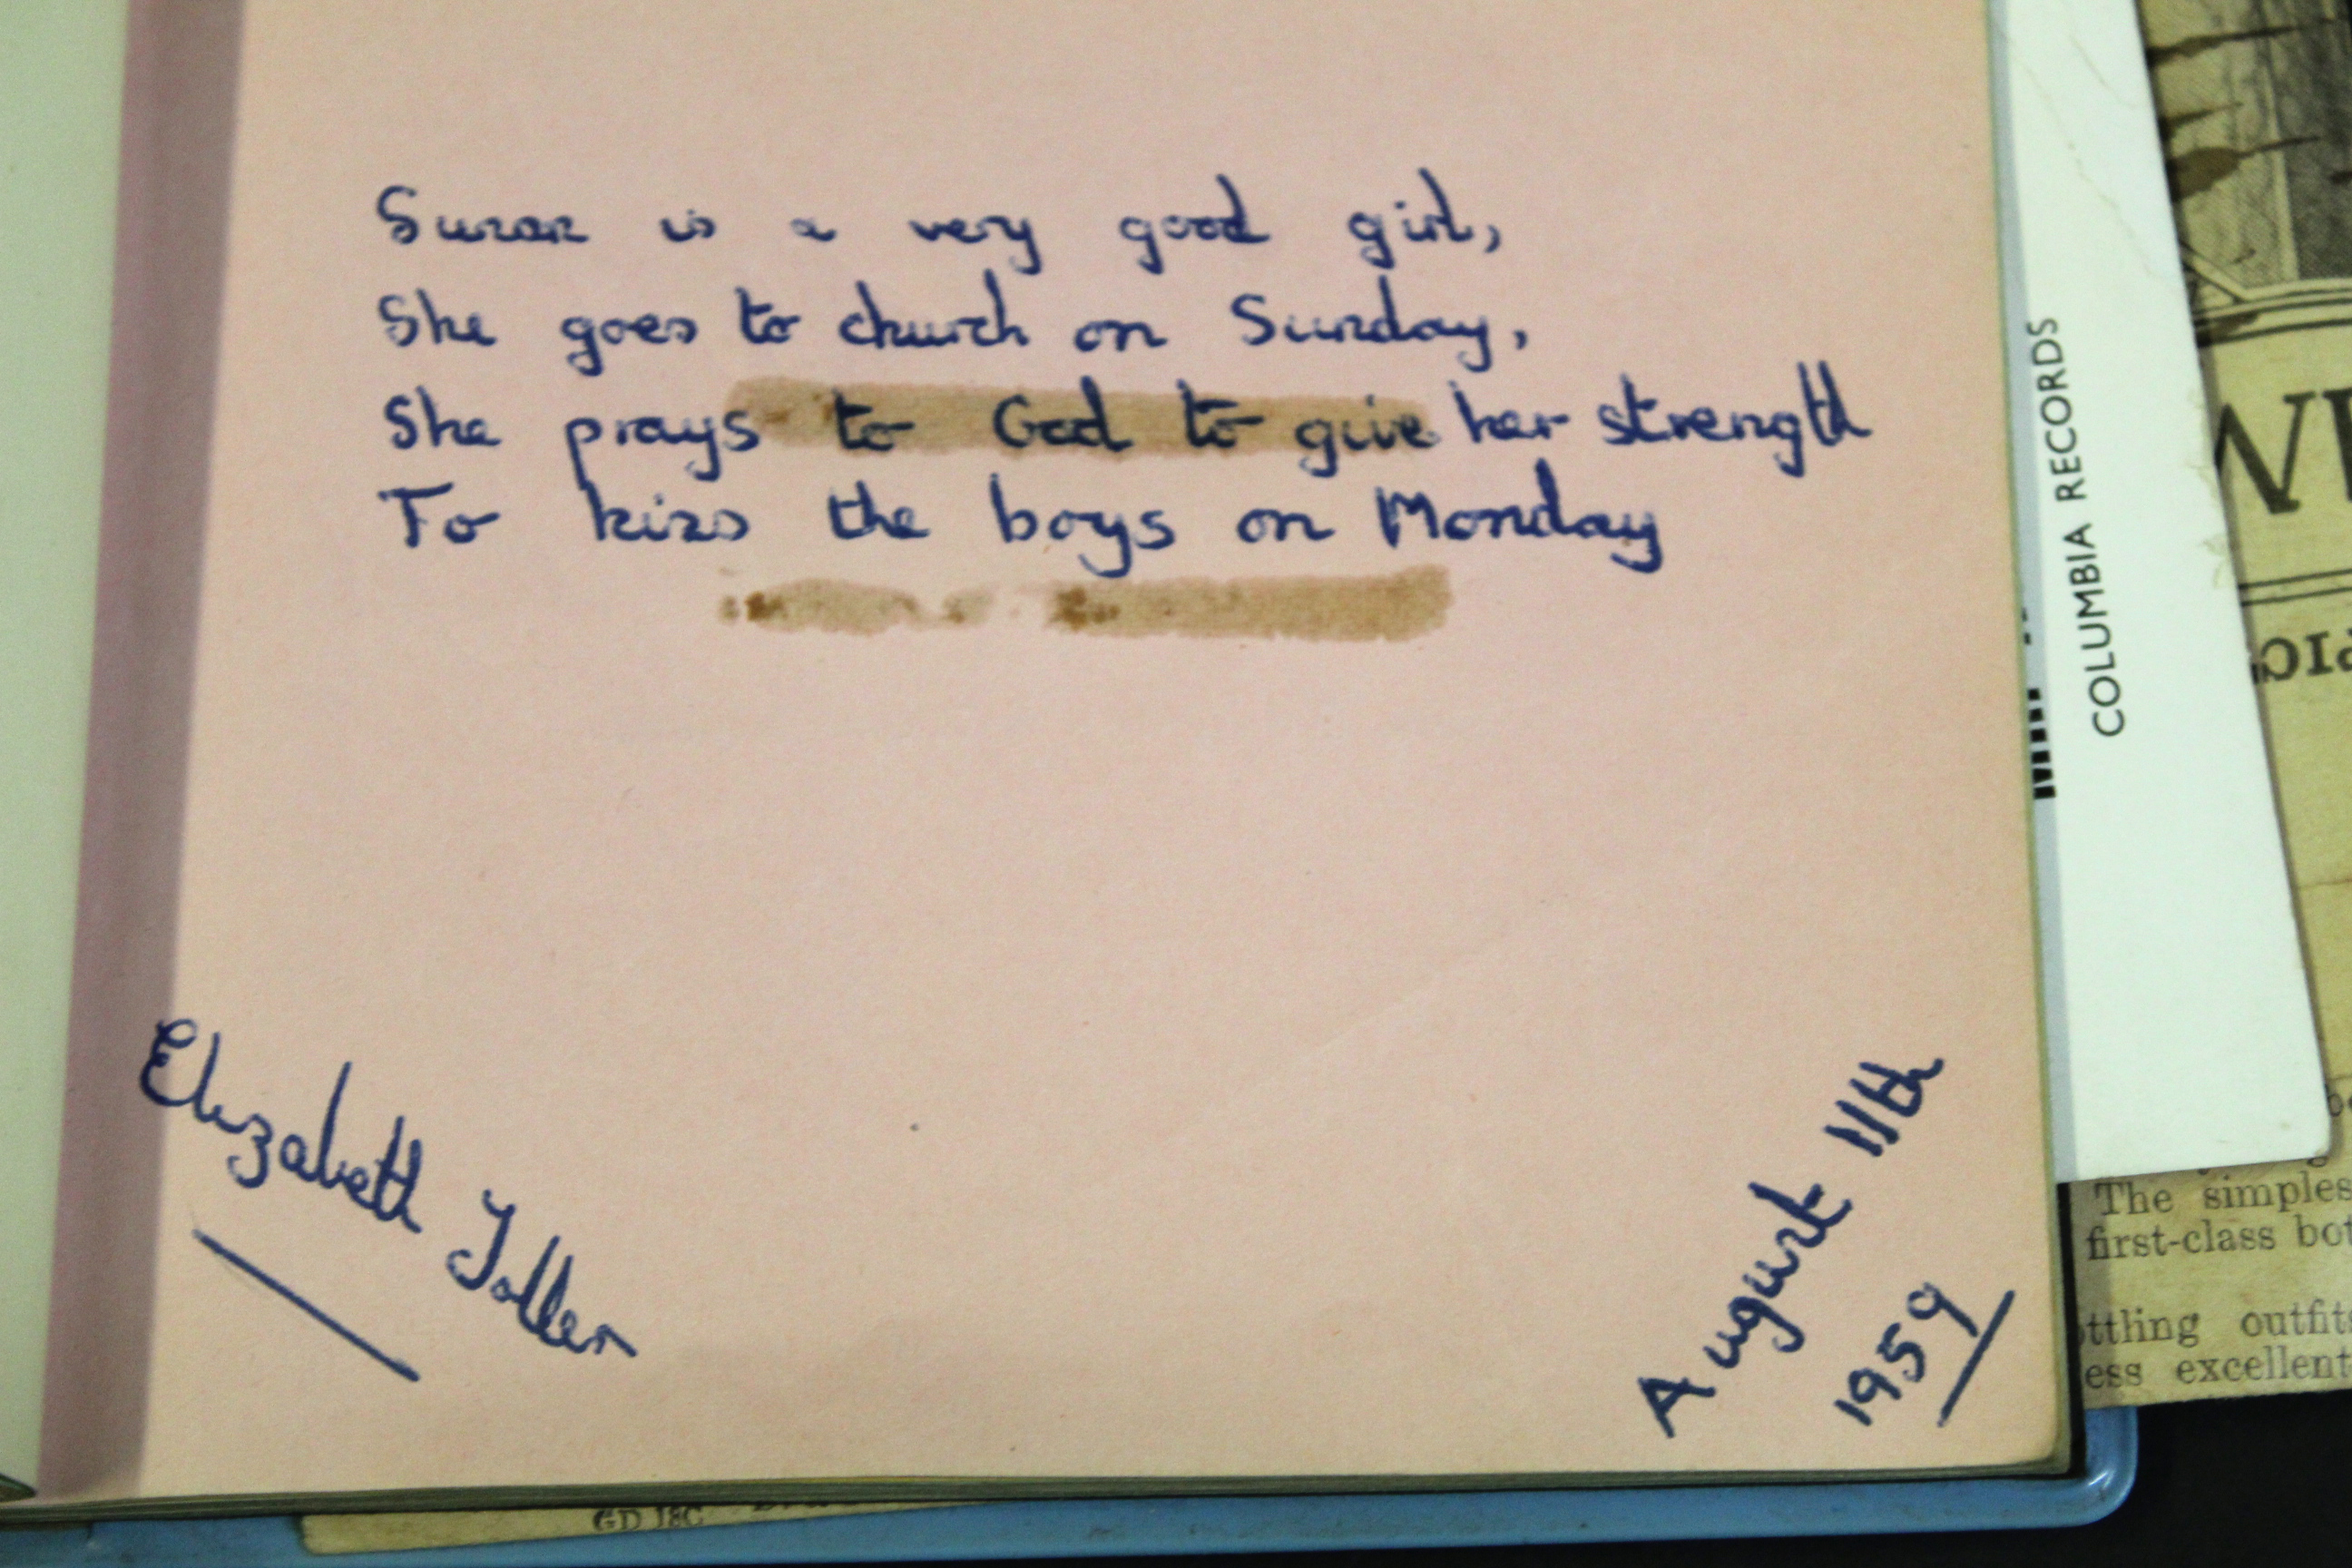 Susan is a very good girl,
She goes to church on Sunday,
She prays to God to give her strength
To kiss the boys on Monday
Elizabeth Toller
August 11th
1959
COLUMBIA RECORDS
The simples
first-class bot
ttling outfits
ess excellent